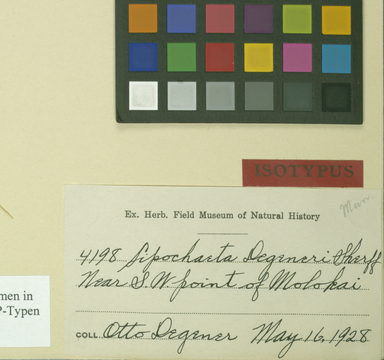 ISOTYPUS
Ex. Herb. Field Museum of Natural History
4198 Lipochaeta Degeneri Sherff
Near S.W. point of Molokai
men in
P-Typen
COLL. Otto Degener May 16, 1928